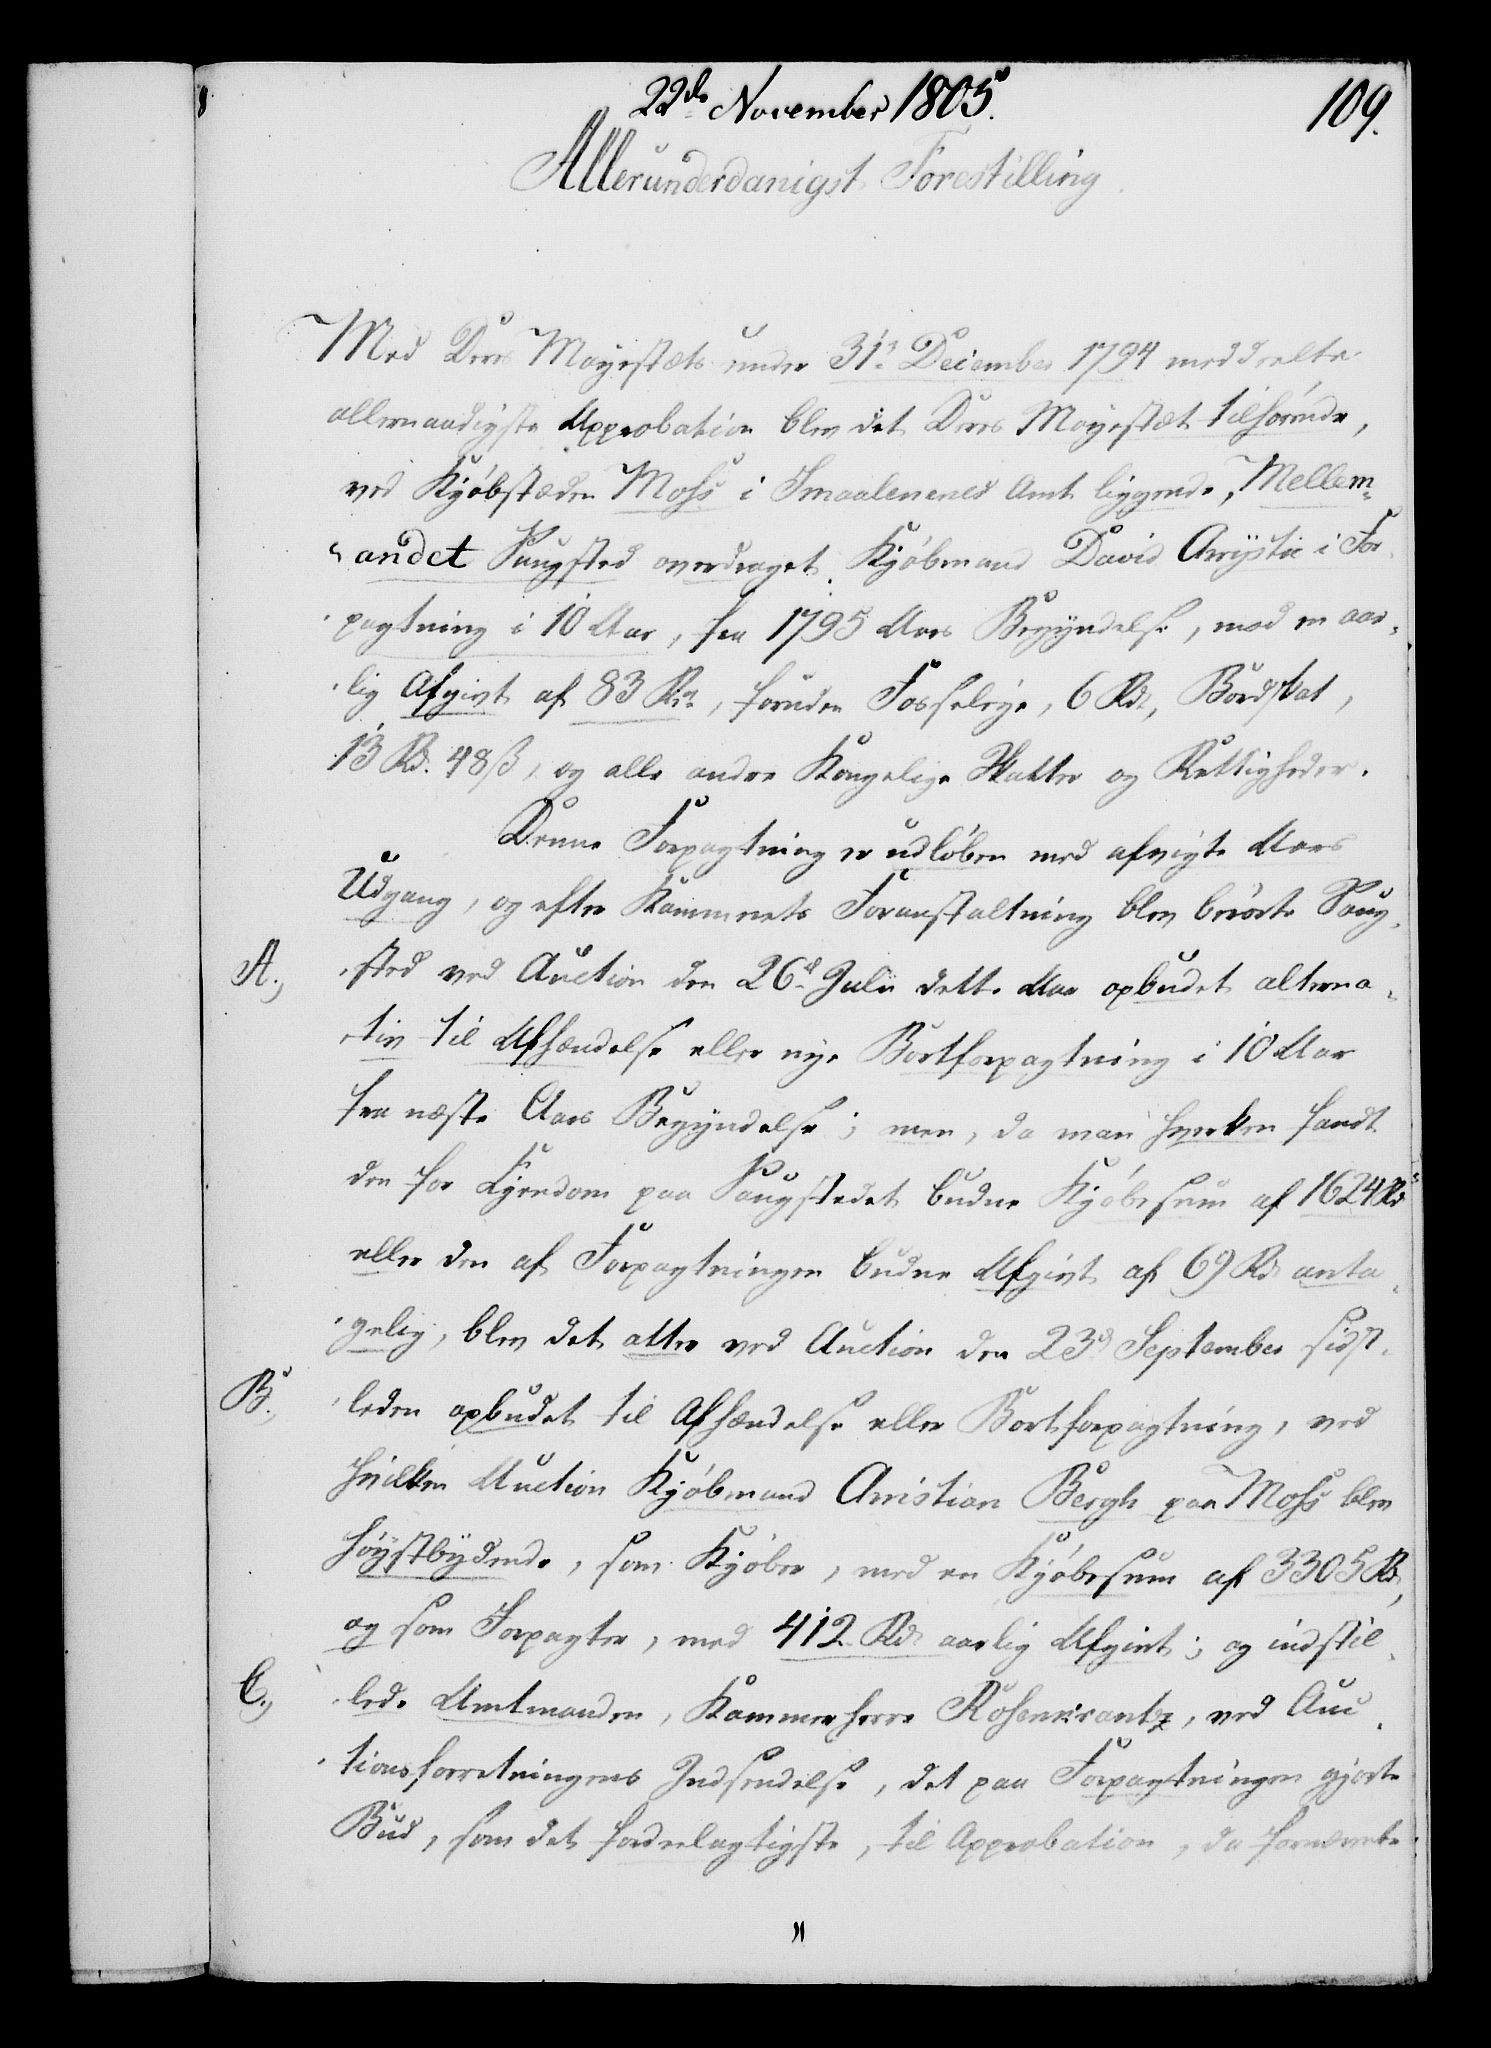 22de November 1805.
109.
Allerunderdanigst Forestilling
Med Deres Mayestæts under 31te December 1794 meddeelte
allernaadigste Approbation blev det Deres Mayestæt tilhørende,
ved Kjøbstæden Mohs i Smaalenenes Amt liggende, Mellem-
andet Saugsted overdraget Kjøbmand David Chrystie i For-
pagtning i 10 Aar, fra 1795 Aars Begyndelse, mod en aar-
lig Afgivt af 83 Rd, foruden Fosseleye, 6 Rd, Bordskat,
13 Rd. 48 ß, og alle andre Kongelige Skatter og Rettigheder.
Denne Forpagtning er udløben med afvigte Aars
Udgang, og efter Kammerets Foranstaltning blev berørte Saug-
A.) sted ved Auction den 26d Julii dette Aar opbudet alterna-
tiv til Afhændelse eller nye Bortforpagtning i 10 Aar
fra næste Aars Begyndelse; men, da man hverken fandt
den for Eyendom paa Saugstedet budne Kjøbesum af 1624 Rd
eller den af Forpagtningen budne Afgivt af 69 Rd anta-
gelig, blev det atter ved Auction den 23d September sidst-
B.) leden opbudet til Afhændelse eller Bortforpagtning, ved
hvilken Auction Kjøbmand Christian Bergh paa Mohs blev
høystbydende, som Kjøber, med en Kjøbesum af 3305 Rd,
og som Forpagter, med 412 Rd aarlig Afgivt; og indstil-
C.) lede Amtmanden, Kammerherre Rosenkrantz, ved Auc-
tionsforretningens Indsendelse, det paa Forpagtningen gjorte
Bud, som det fordeelagtigste, til Approbation, da fornævnte